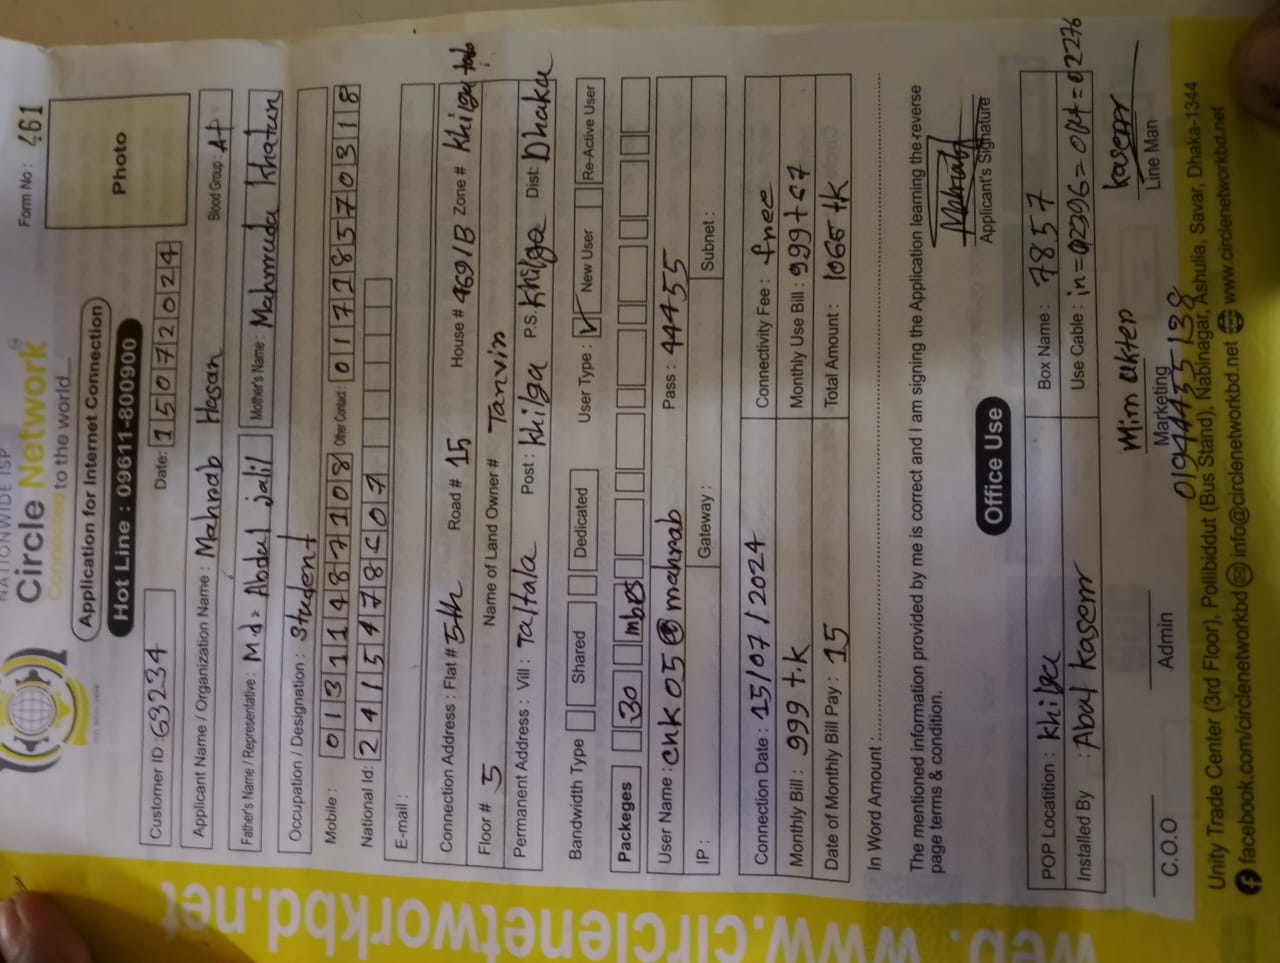 NATIONWIDE ISP
Circle Network
Connected to the world
Form No : 461
Application for Internet Connection
Hot Line : 09611-800900
Photo
Customer ID : 63234 Date: 15072024
Applicant Name / Organization Name : Mahrab Hasan Blood Group : A+
Father's Name / Representative : Md. Abdul Jalil Mother's Name : Mahmuda Khatun
Occupation / Designation : Student
Mobile : Other Contact : 01718570318
National Id:
E-mail :
Connection Address : Flat # 5th Road # 15 House # 469/B Zone # Khilga
Floor # 5 Name of Land Owner # Tanvin
Permanent Address : Vill : Taltala Post : Khilga P.S. Khilga Dist: Dhaka
Bandwidth Type Shared Dedicated User Type : ✓ New User Re-Active User
Packeges 30 mbps
User Name : cnk05@mahrab Pass : 44455
IP : Gateway : Subnet :
Connection Date : 15/07/2024 Connectivity Fee : free
Monthly Bill : 999 t.k Monthly Use Bill : 999+67
Date of Monthly Bill Pay : 15 Total Amount : 1066 tk
In Word Amount :
The mentioned information provided by me is correct and I am signing the Application learning the reverse
page terms & condition.
Applicant's Signature
Office Use
POP Locatition : Khilga Box Name : 7857
Installed By : Abul Kasem Use Cable :
Mim akter Kasem
C.O.O Admin Marketing Line Man
Unity Trade Center (3rd Floor), Pollibiddut (Bus Stand), Nabinagar, Ashulia, Savar, Dhaka-1344
facebook.com/circlenetworkbd info@circlenetworkbd.net www.circlenetworkbd.net
web: www.circlenetworkbd.net